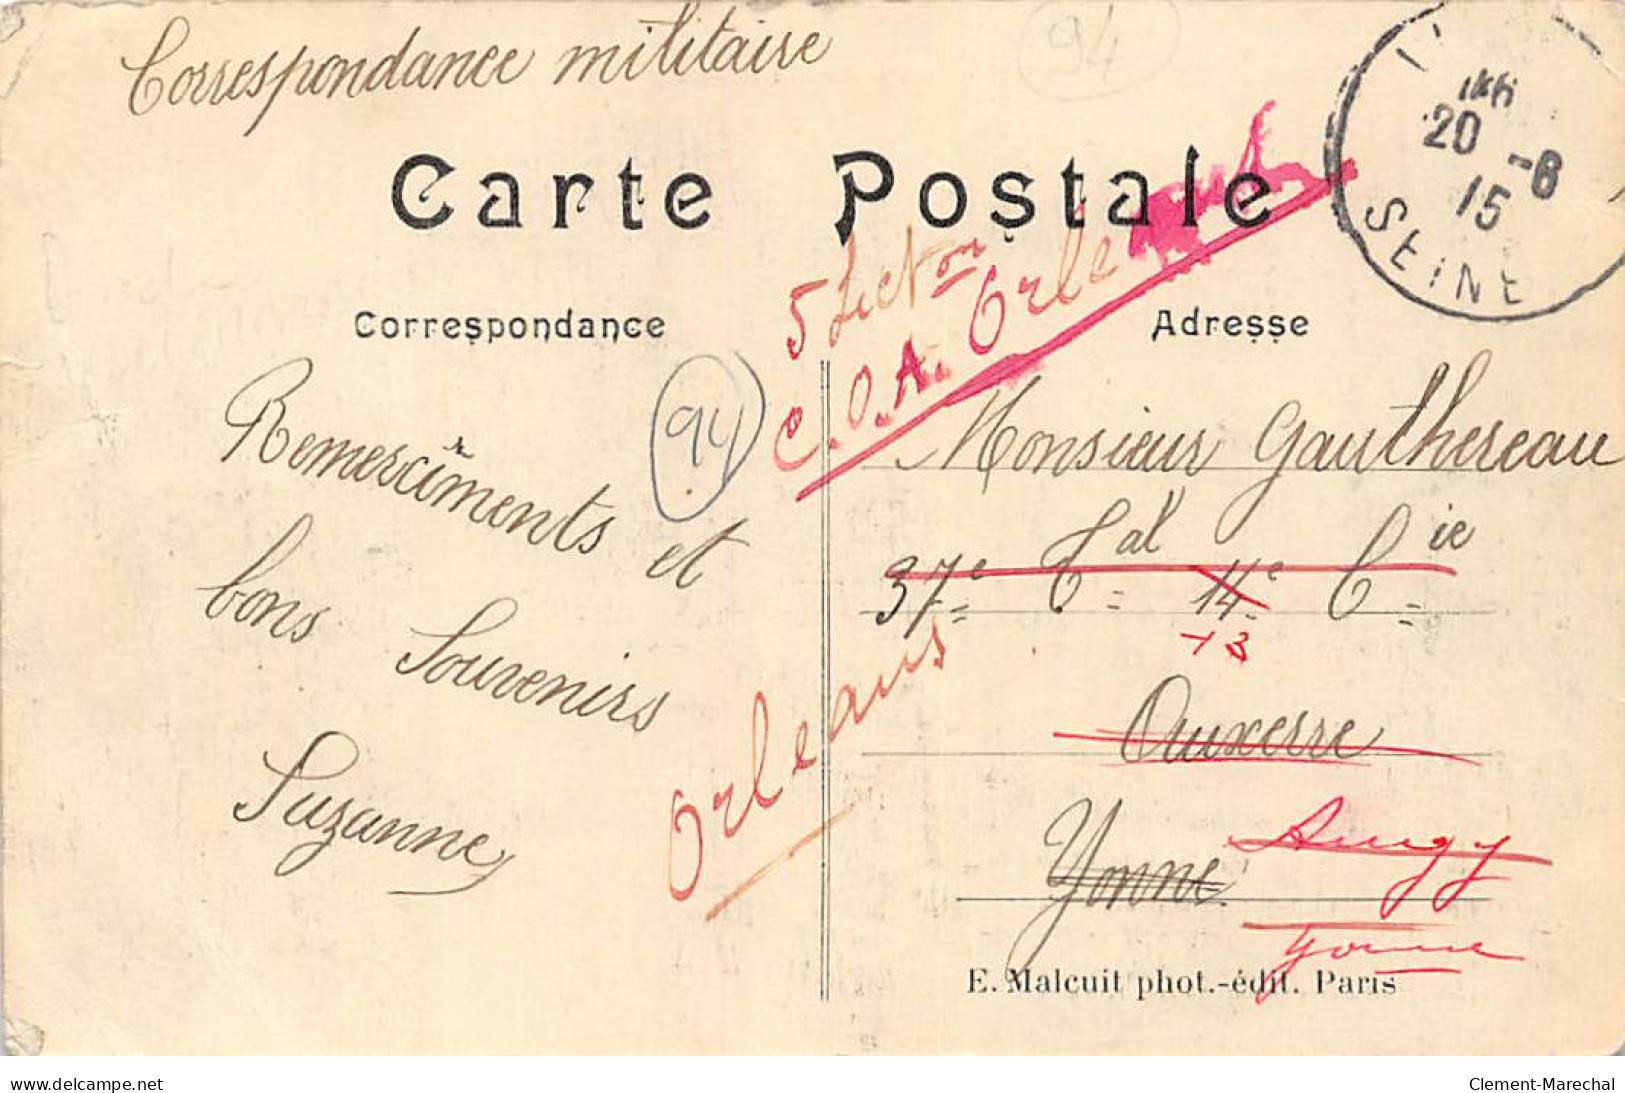 Correspondance militaire
94
20 -6
15
SEINE
Carte Postale
5 Section
C.O.A. Orleans
Correspondance
Adresse
94
Remercîments et
bons Souvenirs
Suzanne
Monsieur Gauthereau
37e Tal 14e Cie
13
Orleans
Auxerre
Yonne
Augy
Yonne
E. Malcuit phot.-édit. Paris
www.delcampe.net
Clement-Marechal